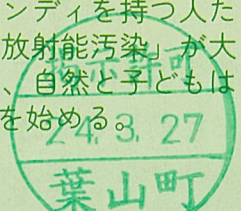 ンディを持つ人た
放射能汚染」が大
、自然と子どもは
を始める。
掲示許可
24.3.27
葉山町